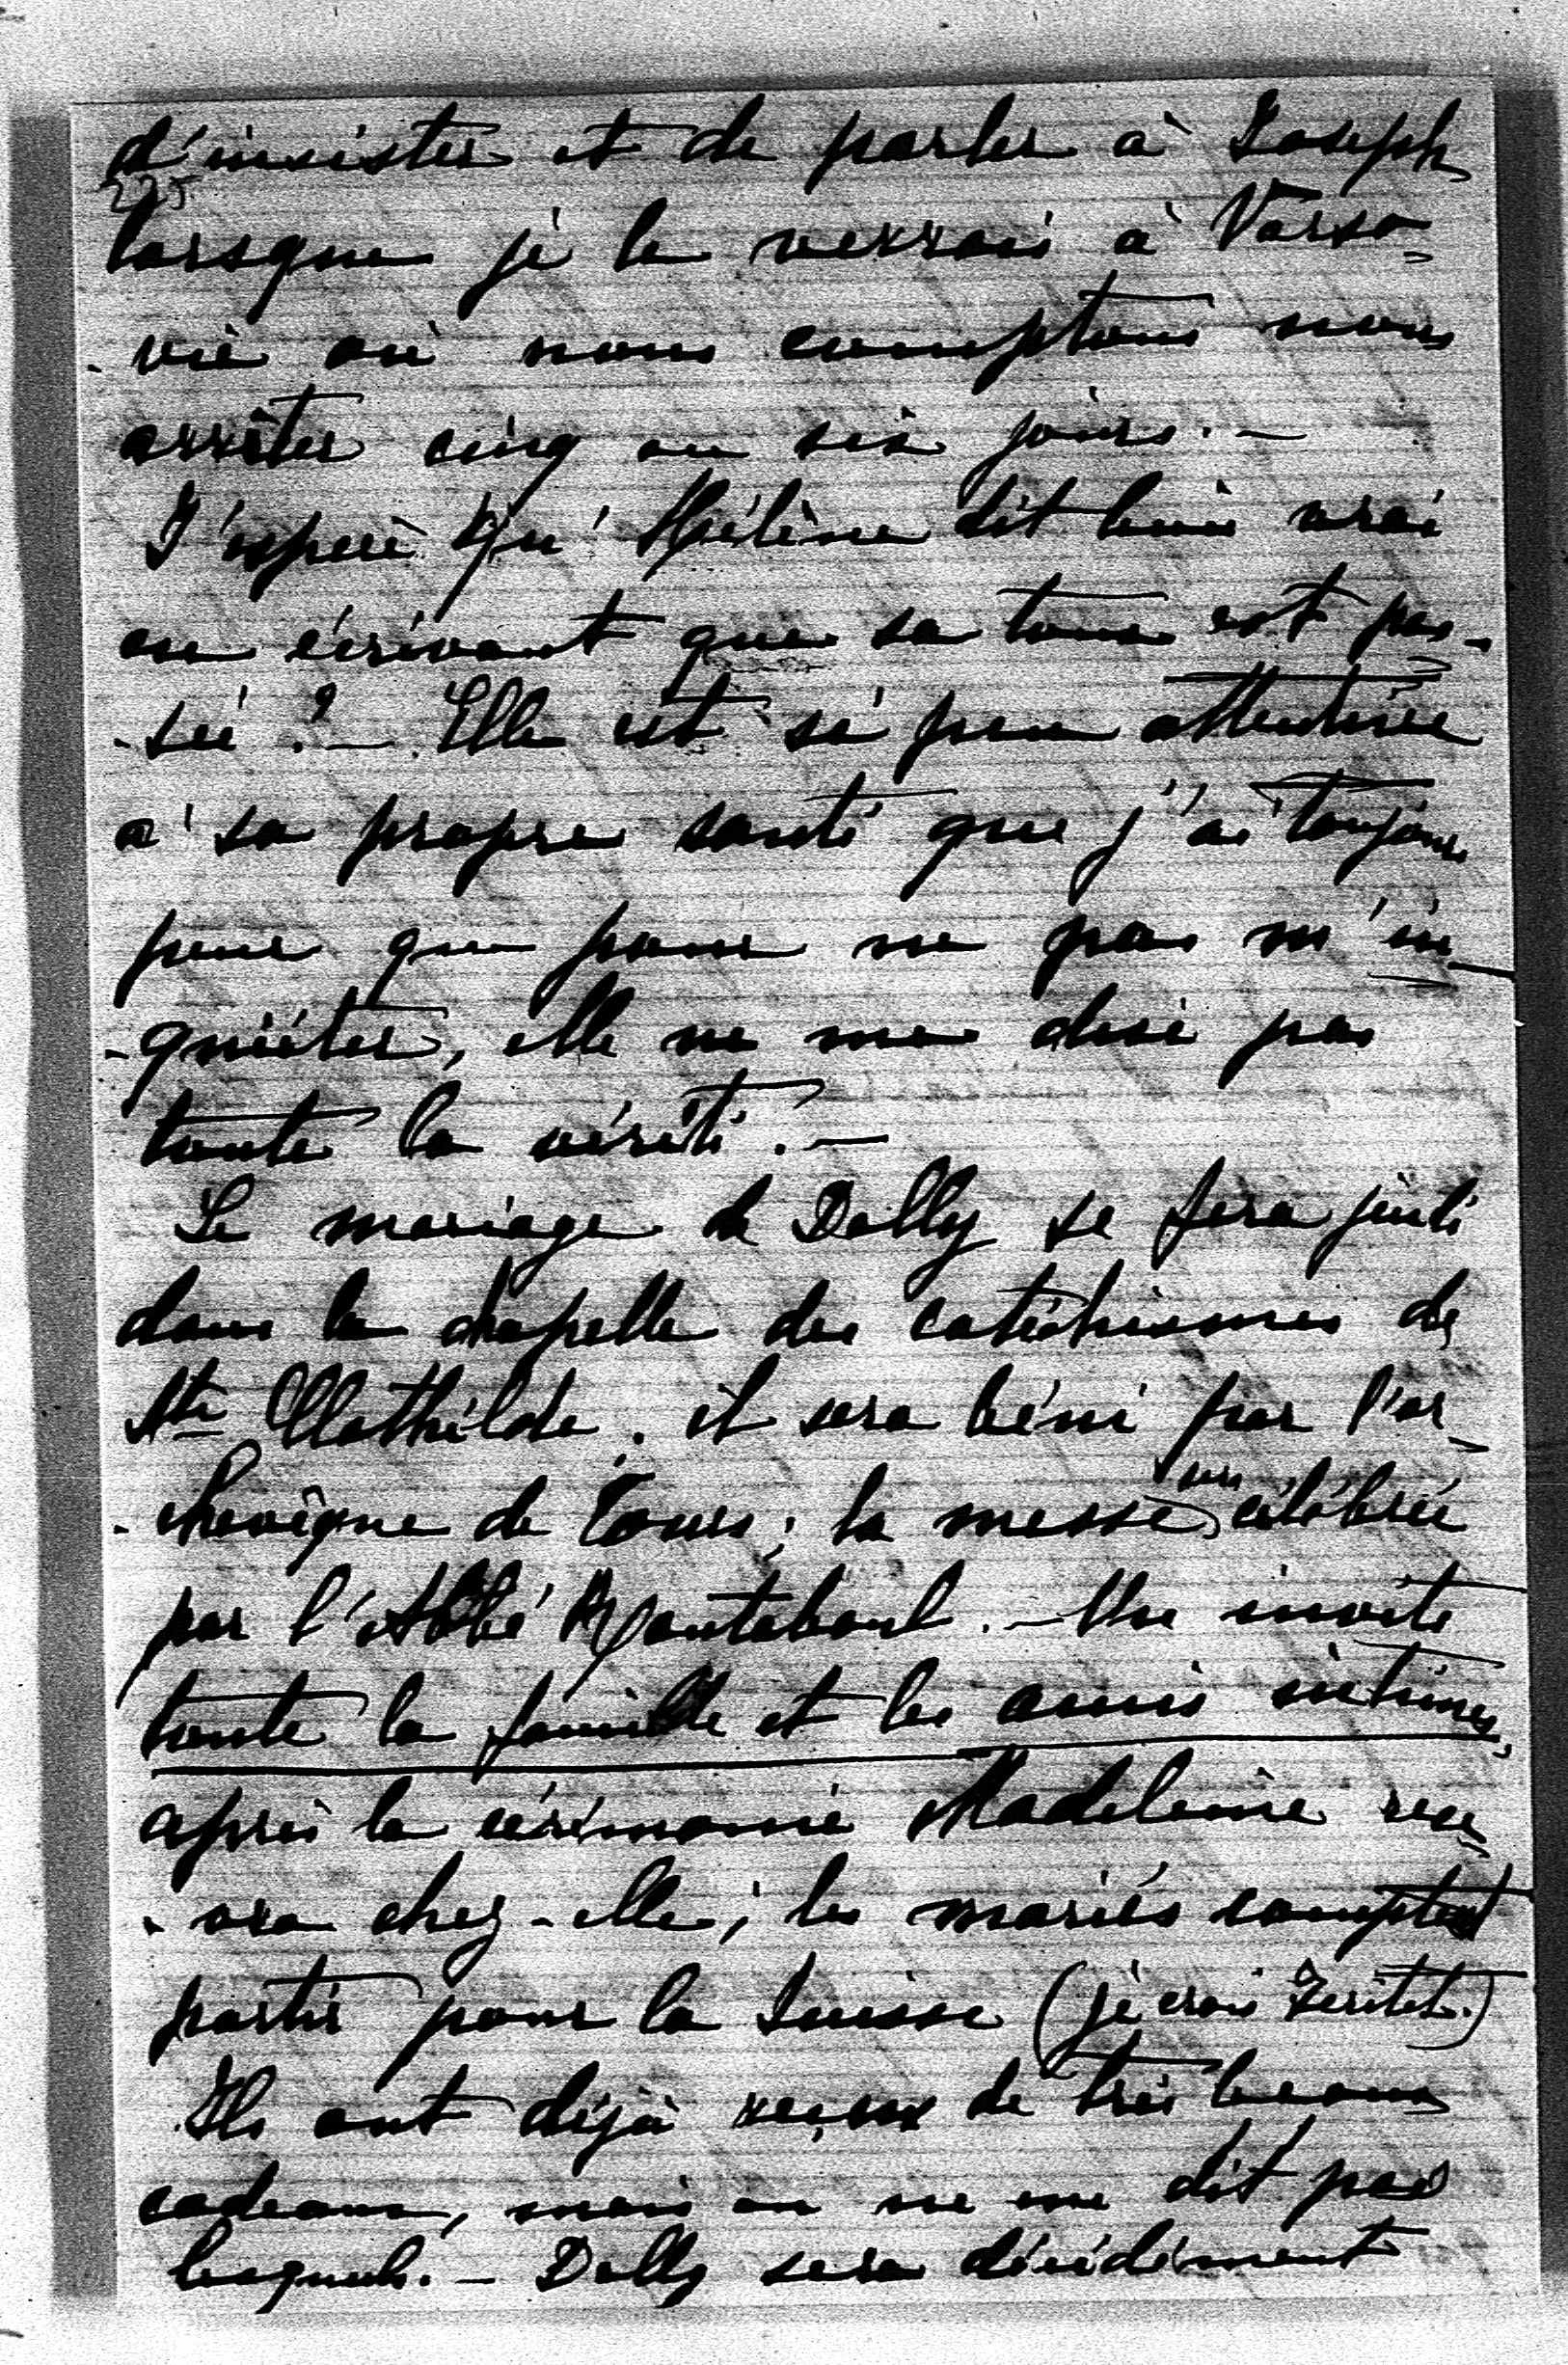 d'insister et de parler à Joseph
225
lorsque je le verrai à Varso-
-vie où nous comptons nous
arrêter cinq ou six jours. —
J'espère qu'Hélène dit bien vrai
en écrivant que sa toux est pas-
-sée ? — Elle est si peu attentive
à sa propre santé que j'ai toujours
peur que pour ne pas m'in-
-quiéter, elle ne me dise pas
toute la vérité. —
Le mariage de Dolly se fera jeudi
dans la chapelle des catéchismes de
Ste Clothilde. il sera béni par l'ar-
-chevêque de Tours; la messe sera célébrée
par l'Abbé . — On invite
toute la famille et les amis intimes,
après la cérémonie Madeleine rece-
-vra chez-elle; les mariés comptent
partir pour la Suisse (je crois Territet.)
Ils ont déjà reçus de très beaux
cadeaux, mais on ne me dit pas
lesquels. — Dolly sera décidément